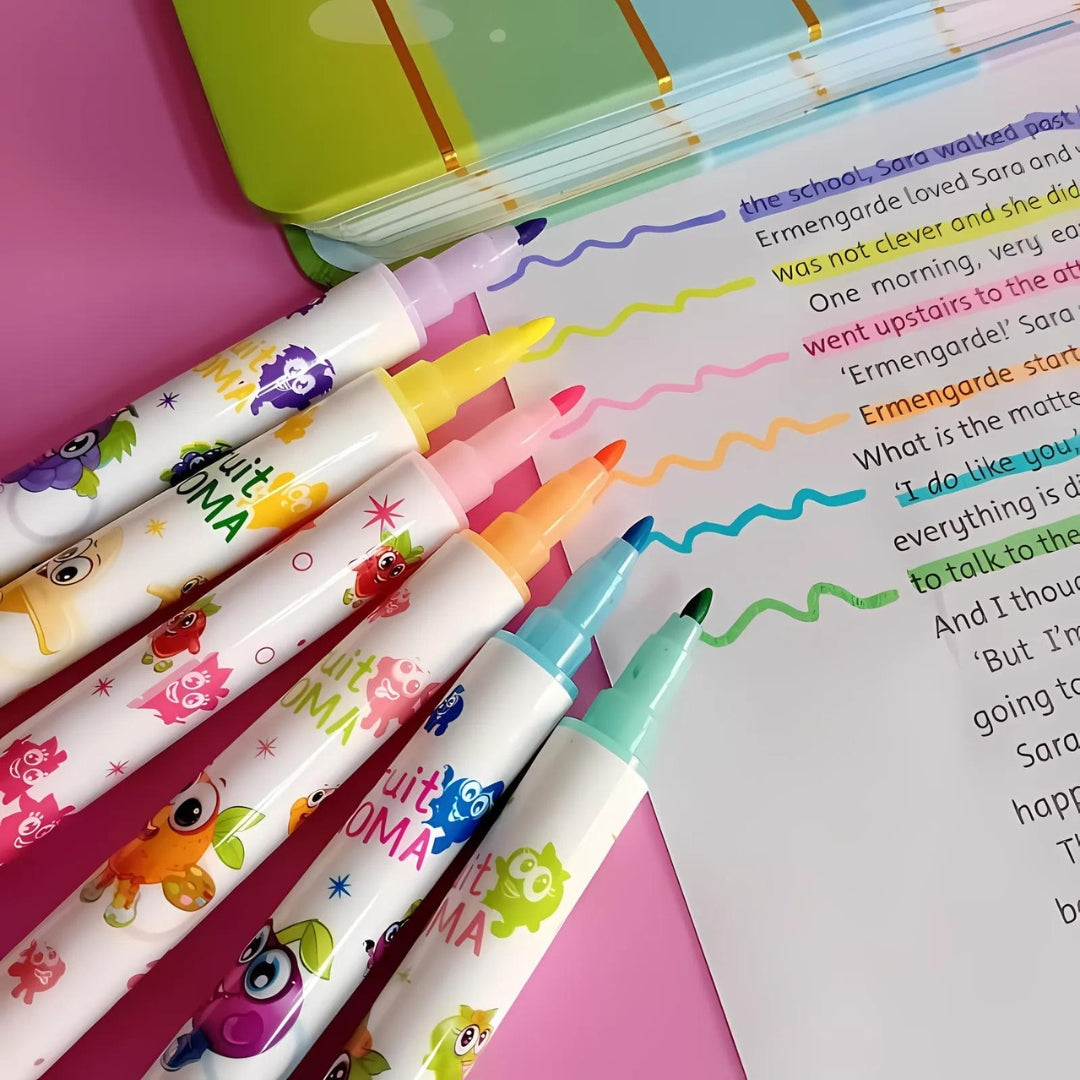 the school, Sara walked past
Ermengarde loved Sara and
was not clever and she did
One morning, very
went upstairs to the
'Ermengarde!' Sara
Ermengarde
What is the
'I do like you,'
everything is
to talk to the
And I
'But I'm
going
Sara
OMA
uit
OMA
uit
OMA
uit
OMA